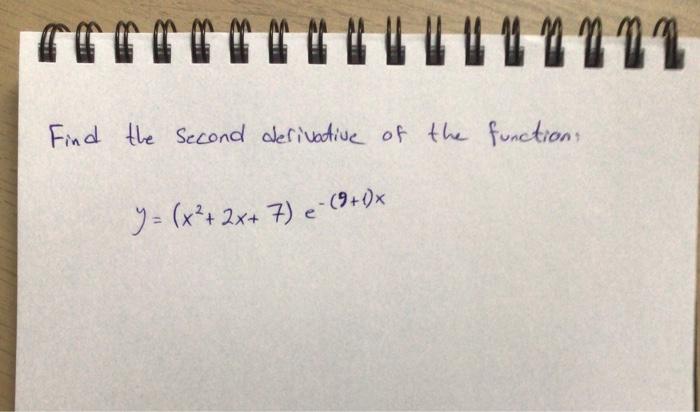 Find the second derivative of the function:
y = (x² + 2x + 7) e^-(9+1)x